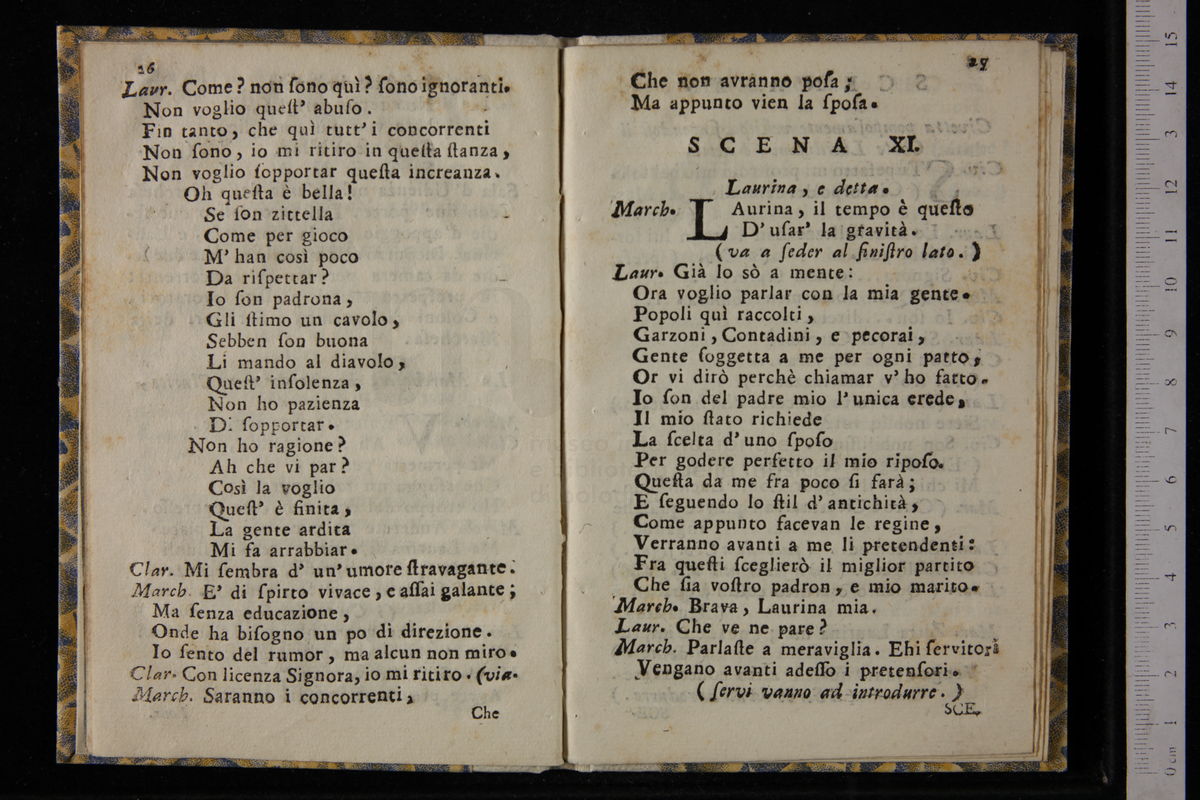 26
Laur. Come? non ſono quì? ſono ignoranti.
Non voglio queſt' abuſo.
Fin tanto, che quì tutt' i concorrenti
Non ſono, io mi ritiro in queſta ſtanza,
Non voglio ſopportar queſta increanza.
Oh queſta è bella!
Se ſon zittella
Come per gioco
M' han così poco
Da riſpettar?
Io ſon padrona,
Gli ſtimo un cavolo,
Sebben ſon buona
Li mando al diavolo,
Queſt' inſolenza,
Non ho pazienza
Di ſopportar.
Non ho ragione?
Ah che vi par?
Così la voglio
Queſt' è finita,
La gente ardita
Mi fa arrabbiar.
Clar. Mi ſembra d' un' umore ſtravagante.
March. E' di ſpirto vivace, e aſſai galante;
Ma ſenza educazione,
Onde ha biſogno un po di direzione.
Io ſento del rumor, ma alcun non miro.
Clar. Con licenza Signora, io mi ritiro. (via.
March. Saranno i concorrenti,
Che
27
Che non avranno poſa;
Ma appunto vien la ſpoſa.
SCENA XI.
Laurina, e detta.
March. LAurina, il tempo è queſto
D' uſar' la gravità.
(va a ſeder al ſiniſtro lato.)
Laur. Già lo sò a mente:
Ora voglio parlar con la mia gente.
Popoli quì raccolti,
Garzoni, Contadini, e pecorai,
Gente ſoggetta a me per ogni patto,
Or vi dirò perchè chiamar v' ho fatto.
Io ſon del padre mio l' unica erede,
Il mio ſtato richiede
La ſcelta d' uno ſpoſo
Per godere perfetto il mio ripoſo.
Queſta da me fra poco ſi farà;
E ſeguendo lo ſtil d' antichità,
Come appunto facevan le regine,
Verranno avanti a me li pretendenti:
Fra queſti ſceglierò il miglior partito
Che ſia voſtro padron, e mio marito.
March. Brava, Laurina mia.
Laur. Che ve ne pare?
March. Parlaſte a meraviglia. Ehi ſervitori
Vengano avanti adeſſo i pretenſori.
(ſervi vanno ad introdurre.)
SCE.